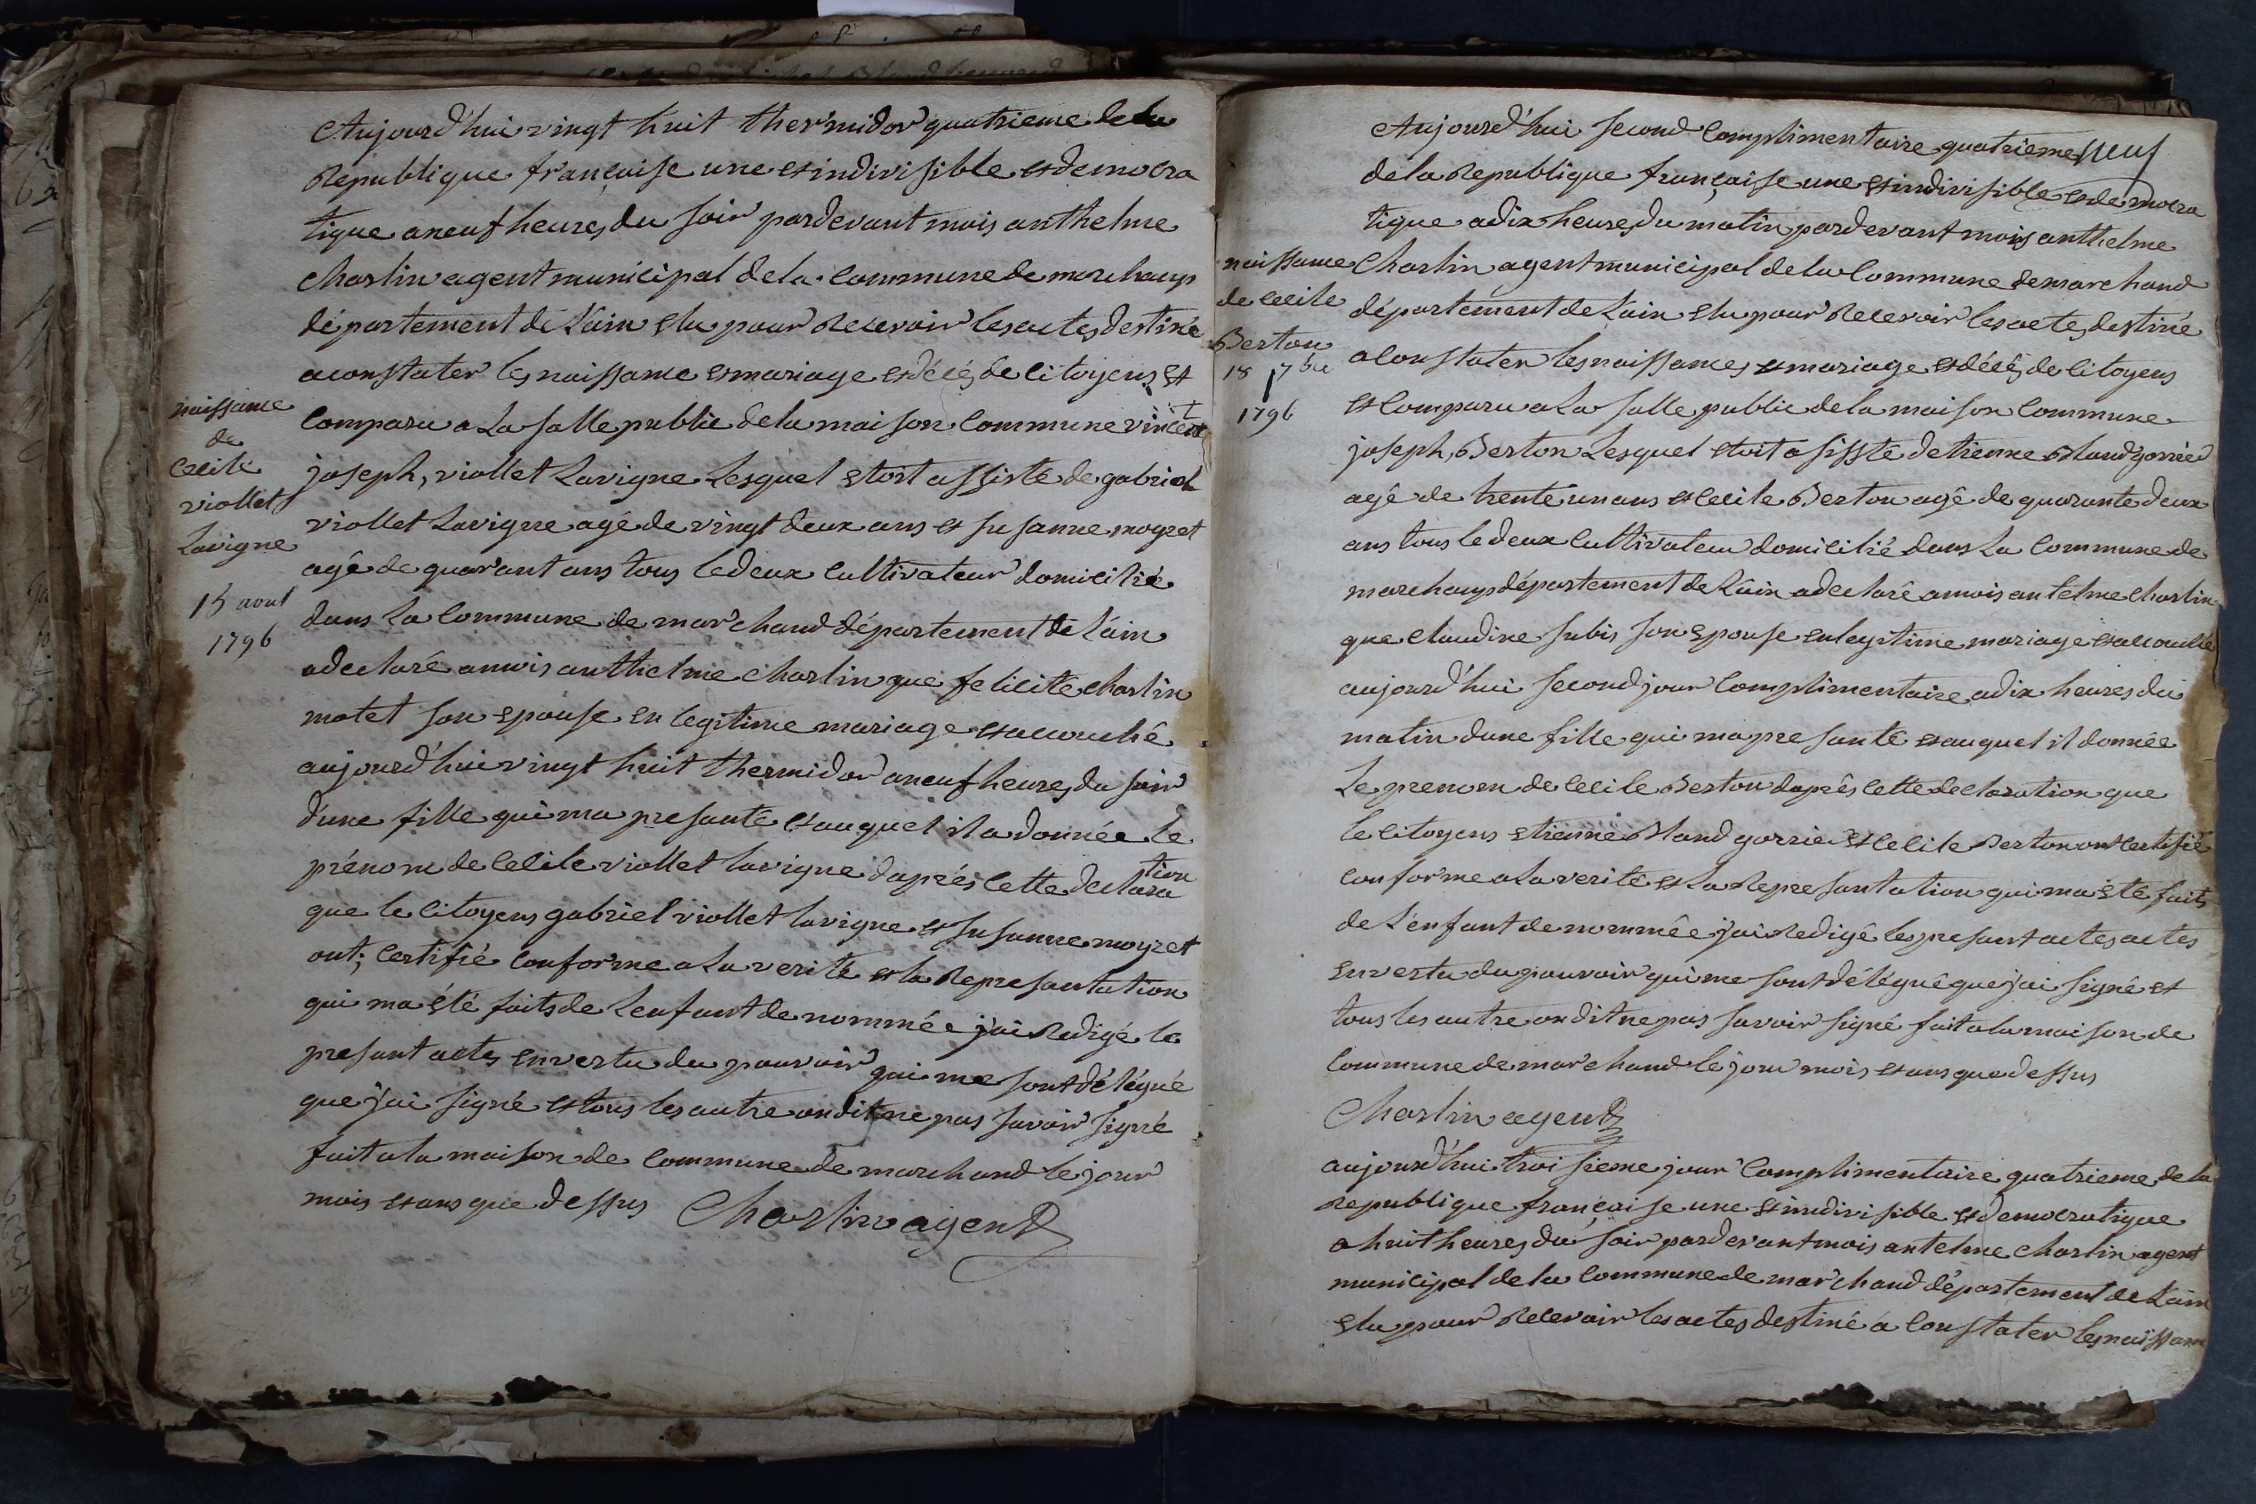 Aujourd'hui vingt huit thermidor quatrieme de la
Republique françaisse une et indivisible et democra
tique a neuf heures du soir pardevant mois anthelme
Charlin agent municipal de la commune de marchamp
département de l'ain elu pour Recevoir les actes destiné
a constater les naissance et mariage et décés de citoyens et
comparu a La salle public de la maison commune vincent
joseph, viollet Lavigne Lesquel etoit assisté de gabriel
viollet Lavigne agé de vingt deux ans et susanne moyret
agê de quarant ans tous le deux cultivateur domicilié
dans La commune de marchand département de L'ain
a declaré a mois anthelme Charlin que felicité charlin
motet son epouse en legitime mariage et acouché
aujourd'hui vingt huit thermidor a neuf heures du soir
d'une fille qui ma presanté et auquel il a donnée le
prénom de Cecile viollet lavigne d'aprés cette declara
tion
que le citoyens gabriel viollet lavigne et susanne moyret
ont; certifié conforme a La verité et la Represantation
qui ma été faits de Lenfant denommée j'ai Redigé le
presant actes en vertu du pouvoir qui me sont délégué
que j'ai signé et tous les autre on dit ne pas savoir signé
fait a la maison de commune de marchand le jour
mois et ans que dessus Charlin agent
naissance
de
Cecile
viollet
Lavigne
15 aout
1796
neuf
Aujourd'hui second complimentaire quatrieme
de la Republique françaisse une et indivisible et democra
tique a dix heures du matin pardevant mois anthelme
Charlin agent municipal de la commune de marchand
département de Lain elu pour Recevoir les actes destiné
a constater les naissances et mariage et décês de citoyens
et comparu a La salle public de la maison commune
joseph, Berton Lesquel etoit assisté detienne Bland gorrié
agê de trente un ans et Cecile Berton agê de quarante deux
ans tous le deux cultivateur domicilié dans La commune de
marchamp département de Lain a declaré a mois antelme Charlin
que claudine subis son epouse en legitime mariage et acouché
aujourd'hui second jour complimentaire a dix heures du
matin dune fille qui ma presanté et auquel il donnée
Le prenom de Cecile Berton daprês cette declaration que
le citoyens etienne Bland gorrie et Cecile Berton ont certifié
conforme a La verité et La Represantation qui ma été faits
de L'enfant denommêe j'ai Redigé les presant actes actes
en vertu du pouvoir qui me sont délégué que j'ai signé et
tous les autre on dit ne pas savoir signé fait a la maison de
commune de marchand le jour mois et ans que dessus
Charlin agent
naissance
de Cecile
Berton
18 7bre
1796
aujourd'hui troisieme jour complimentaire quatrieme de la
Republique françaisse une et indivisible et democratique
a huit heures du soir pardevant mois antelme Charlin agent
municipal de la commune de marchand département de Lain
elu pour Recevoir les actes destiné a constater les naissan